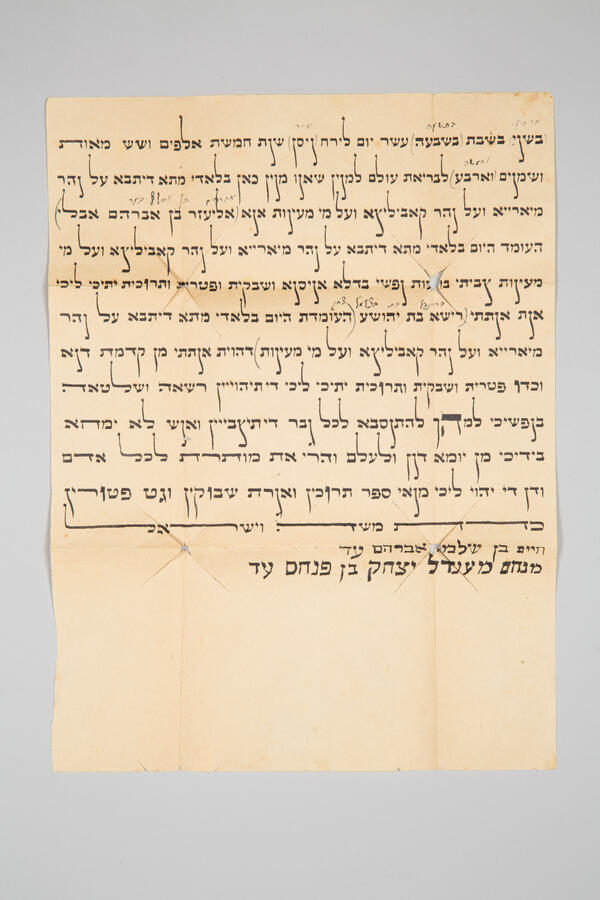 בשני בשבת (בשבעה) עשר יום לירח (ניסן) שנת חמשת אלפים ושש מאות
ושמנים (וארבע) לבריאת עולם למנין שאנו מנין כאן בלאדי מתא דיתבא על נהר
מיארייא ועל נהר קאביליצא ועל מי מעינות אנא (אליעזר בן אברהם אבלי)
העומד היום בלאדי מתא דיתבא על נהר מיארייא ועל נהר קאביליצא ועל מי
מעינות צביתי ברעות נפשי בדלא אניסנא ושבקית ופטרית ותרוכית יתיכי ליכי
אנת אנתתי (רישא בת יהושע) (העומדת היום בלאדי מתא דיתבא על נהר
מיארייא ועל נהר קאביליצא ועל מי מעינות) דהוית אנתתי מן קדמת דנא
וכדו פטרית ושבקית ותרוכית יתיכי ליכי דיתיהוייין רשאה ושלטאה
בנפשיכי למהך להתנסבא לכל גבר דיתיצבייין ואנש לא ימחא
בידיכי מן יומא דנן ולעלם והרי את מותרת לכל אדם
ודן די יהוי ליכי מנאי ספר תרוכין ואגרת שבוקין וגט פטורין
כדת משה וישראל
חיים בן אברהם עד
מנחם מענדל יצחק בן פנחס עד